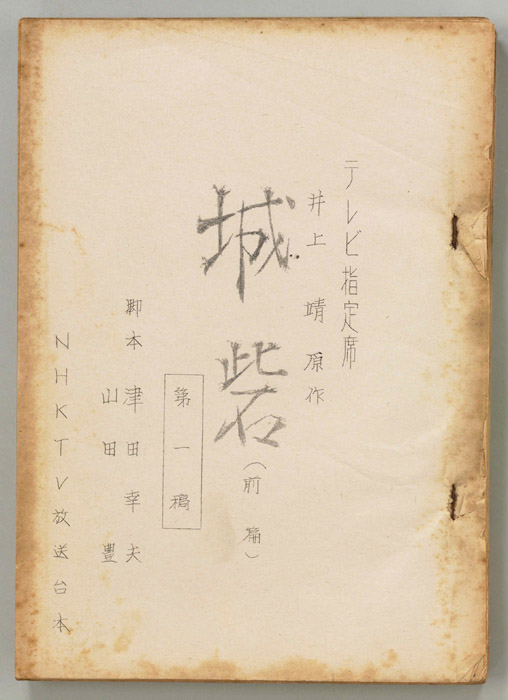 テレビ指定席
井上靖原作
城砦
(前篇)
第一稿
脚本 津田幸夫
山田豊
NHKTV放送台本